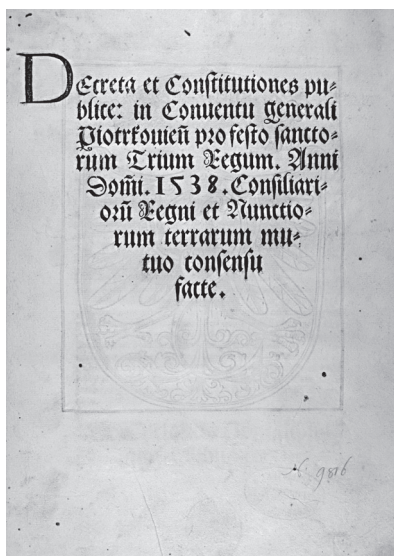 DEcreta et Constitutiones pu⸗
blice: in Conuentu generali
Piotrkouień pro festo sancto⸗
rum Trium Regum. Anni
Dom̄i. 1538. Consiliari⸗
orū Regni et Nunctio⸗
rum terrarum mu⸗
tuo consensu
facte.
N. 9816